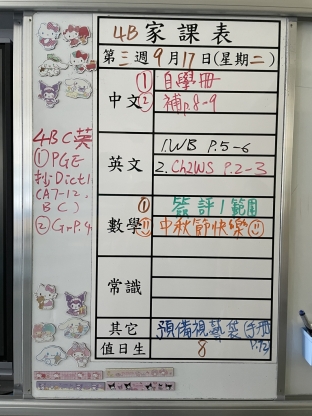 4B 家課表
第三週9月17日(星期二)
中文
① 自學冊
② 補p.8-9
英文
1.WB P.5-6
2.Ch2WS P.2-3
數學
① 簽評1範圍
中秋節快樂
常識
其它
預備視藝袋(手冊P.12)
值日生
8
4BC英
① PGE
抄Dict1
(A7-12,
BC)
② GrP.4